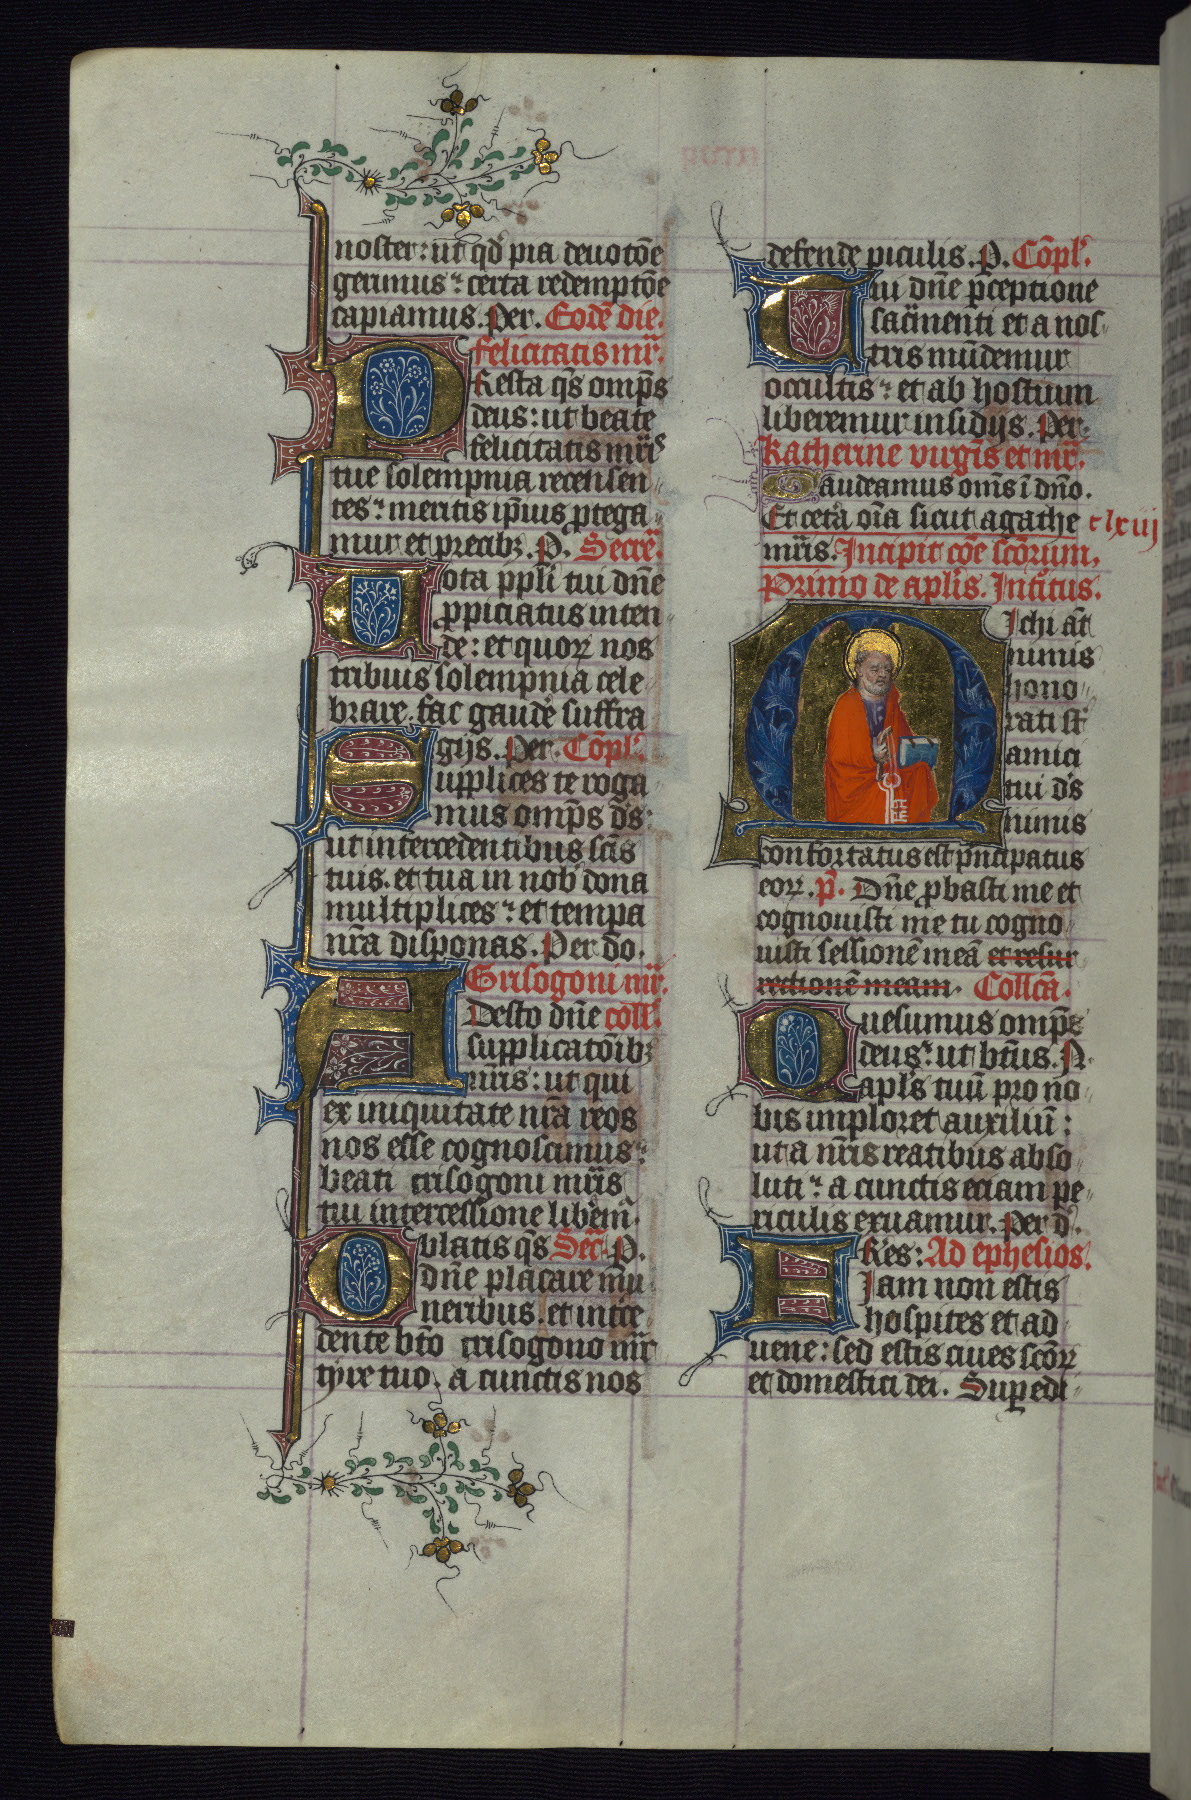 noster: ut qd' pia deuotōe
gerimus: certa redemptōe
capiamus. Per. Eodē die.
felicitatis mr̄.
PResta q̄s omp̄s
deus: ut beate
felicitatis mr̄is
tue solempnia recensen
tes: meritis ip̄ius ꝓtega
mur et precibꝫ. P. Secre.
Uota ppl̄i tui dn̄e
ꝓpiciatus inten
de: et quoꝝ nos
tribuis solempnia cele
brare. fac gaude suffra
gijs. Per. Cōpl'.
Supplices te roga
mus omp̄s d̄s:
ut intercedentibus sc̄is
tuis. et tua in nob' dona
multiplices: et tempa
nr̄a disponas. Per do.
Grisogoni mr̄.
ADesto dn̄e coll'.
supplicatōibꝫ
nr̄is: ut qui
ex iniquitate nr̄a reos
nos esse cognoscimus:
beati crisogoni mr̄is
tui intercessione liberem̄.
Oblatis q̄s Secr̄. P.
dn̄e placare mu
neribus. et interce
dente bt̄o crisogono mr̄
tyre tuo. a cunctis nos
defende piculis. P. Cōpl'.
Tui dn̄e ꝑceptione
sac̄menti et a nos
tris mūdemur
occultis: et ab hostium
liberemur insidijs. Per.
Katherine uirgīs et mr̄.
Gaudeamus om̄s ī dn̄o.
Et cetā oīa sicut agathe clxiij
mr̄is. Incipit cōe sc̄orum,
Primo de apl̄is. Intͥtus.
MIchi āt
nimis
hono
rati st̄
amici
tui d̄s
nimis
confortatus est pͥncipatus
eoꝝ. p̄. Dn̄e ꝓbasti me et
cognouisti me tu cogno
uisti sessionē meā et resur
rectionē meam. Collc̄a.
Quesumus omp̄s
deus: ut bt̄us. N.
apl̄s tuū pro no
bis imploret auxiliū:
ut a nr̄is reatibus abso
luti: a cunctis eciam pe
riculis exuamur. Per d'.
FRes: Ad ephesios.
Iam non estis
hospites et ad
uene: sed estis ciues sc̄oꝝ
et domestici dei. Suꝑedi